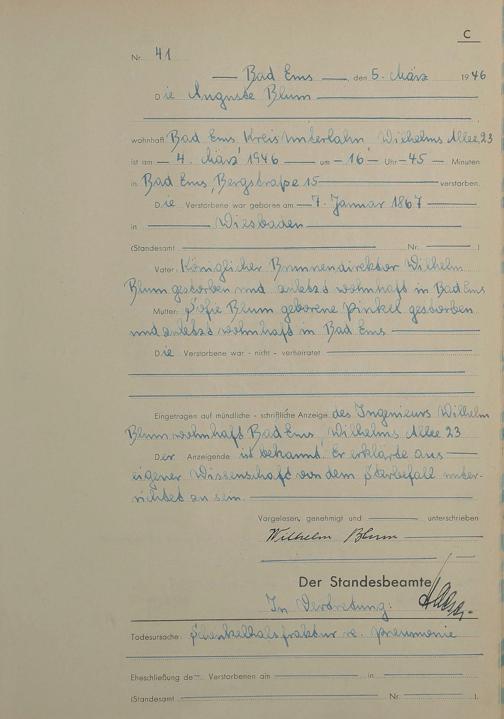 C
Nr. 41
Bad Ems den 5. März 1946
Die Auguste Blum
wohnhaft Bad Ems, Kreis Unterlahn, Wilhelms Allee 23
ist am 4. März 1946 um 16 Uhr 45 Minuten
in Bad Ems, Bergstraße 15 verstorben.
Die Verstorbene war geboren am 7. Januar 1867
in Wiesbaden
(Standesamt Nr. ).
Vater: Königlicher Brunnendirektor Wilhelm
Blum gestorben und zuletzt wohnhaft in Bad Ems
Mutter: Sofie Blum geborene Pinkel gestorben
und zuletzt wohnhaft in Bad Ems
Die Verstorbene war - nicht - verheiratet
Eingetragen auf mündliche - schriftliche Anzeige des Ingenieurs Wilhelm
Blum wohnhaft Bad Ems, Wilhelms Allee 23
Der Anzeigende ist bekannt. Er erklärte aus
eigener Wissenschaft von dem Sterbefall unter-
richtet zu sein.
Vorgelesen, genehmigt und unterschrieben
Wilhelm Blum
Der Standesbeamte
In Vertretung:
Todesursache: Schenkelhalsfraktur re. Pneumonie
Eheschließung de Verstorbenen am in
(Standesamt Nr. ).